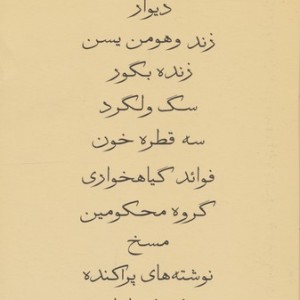 دیوار
زند وهومن یسن
زنده بگور
سگ ولگرد
سه قطره خون
فوائد گیاهخواری
گروه محکومین
مسخ
نوشته‌های پراکنده